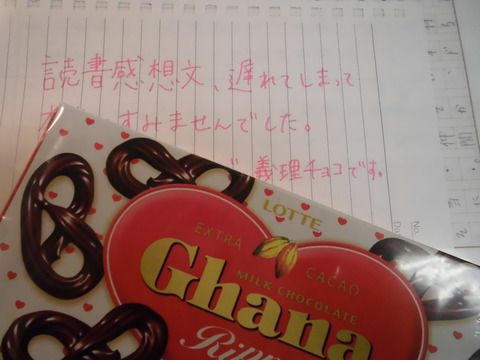 読書感想文、遅れてしまって
すみませんでした。
義理チョコです。
LOTTE
EXTRA CACAO
Ghana
MILK CHOCOLATE